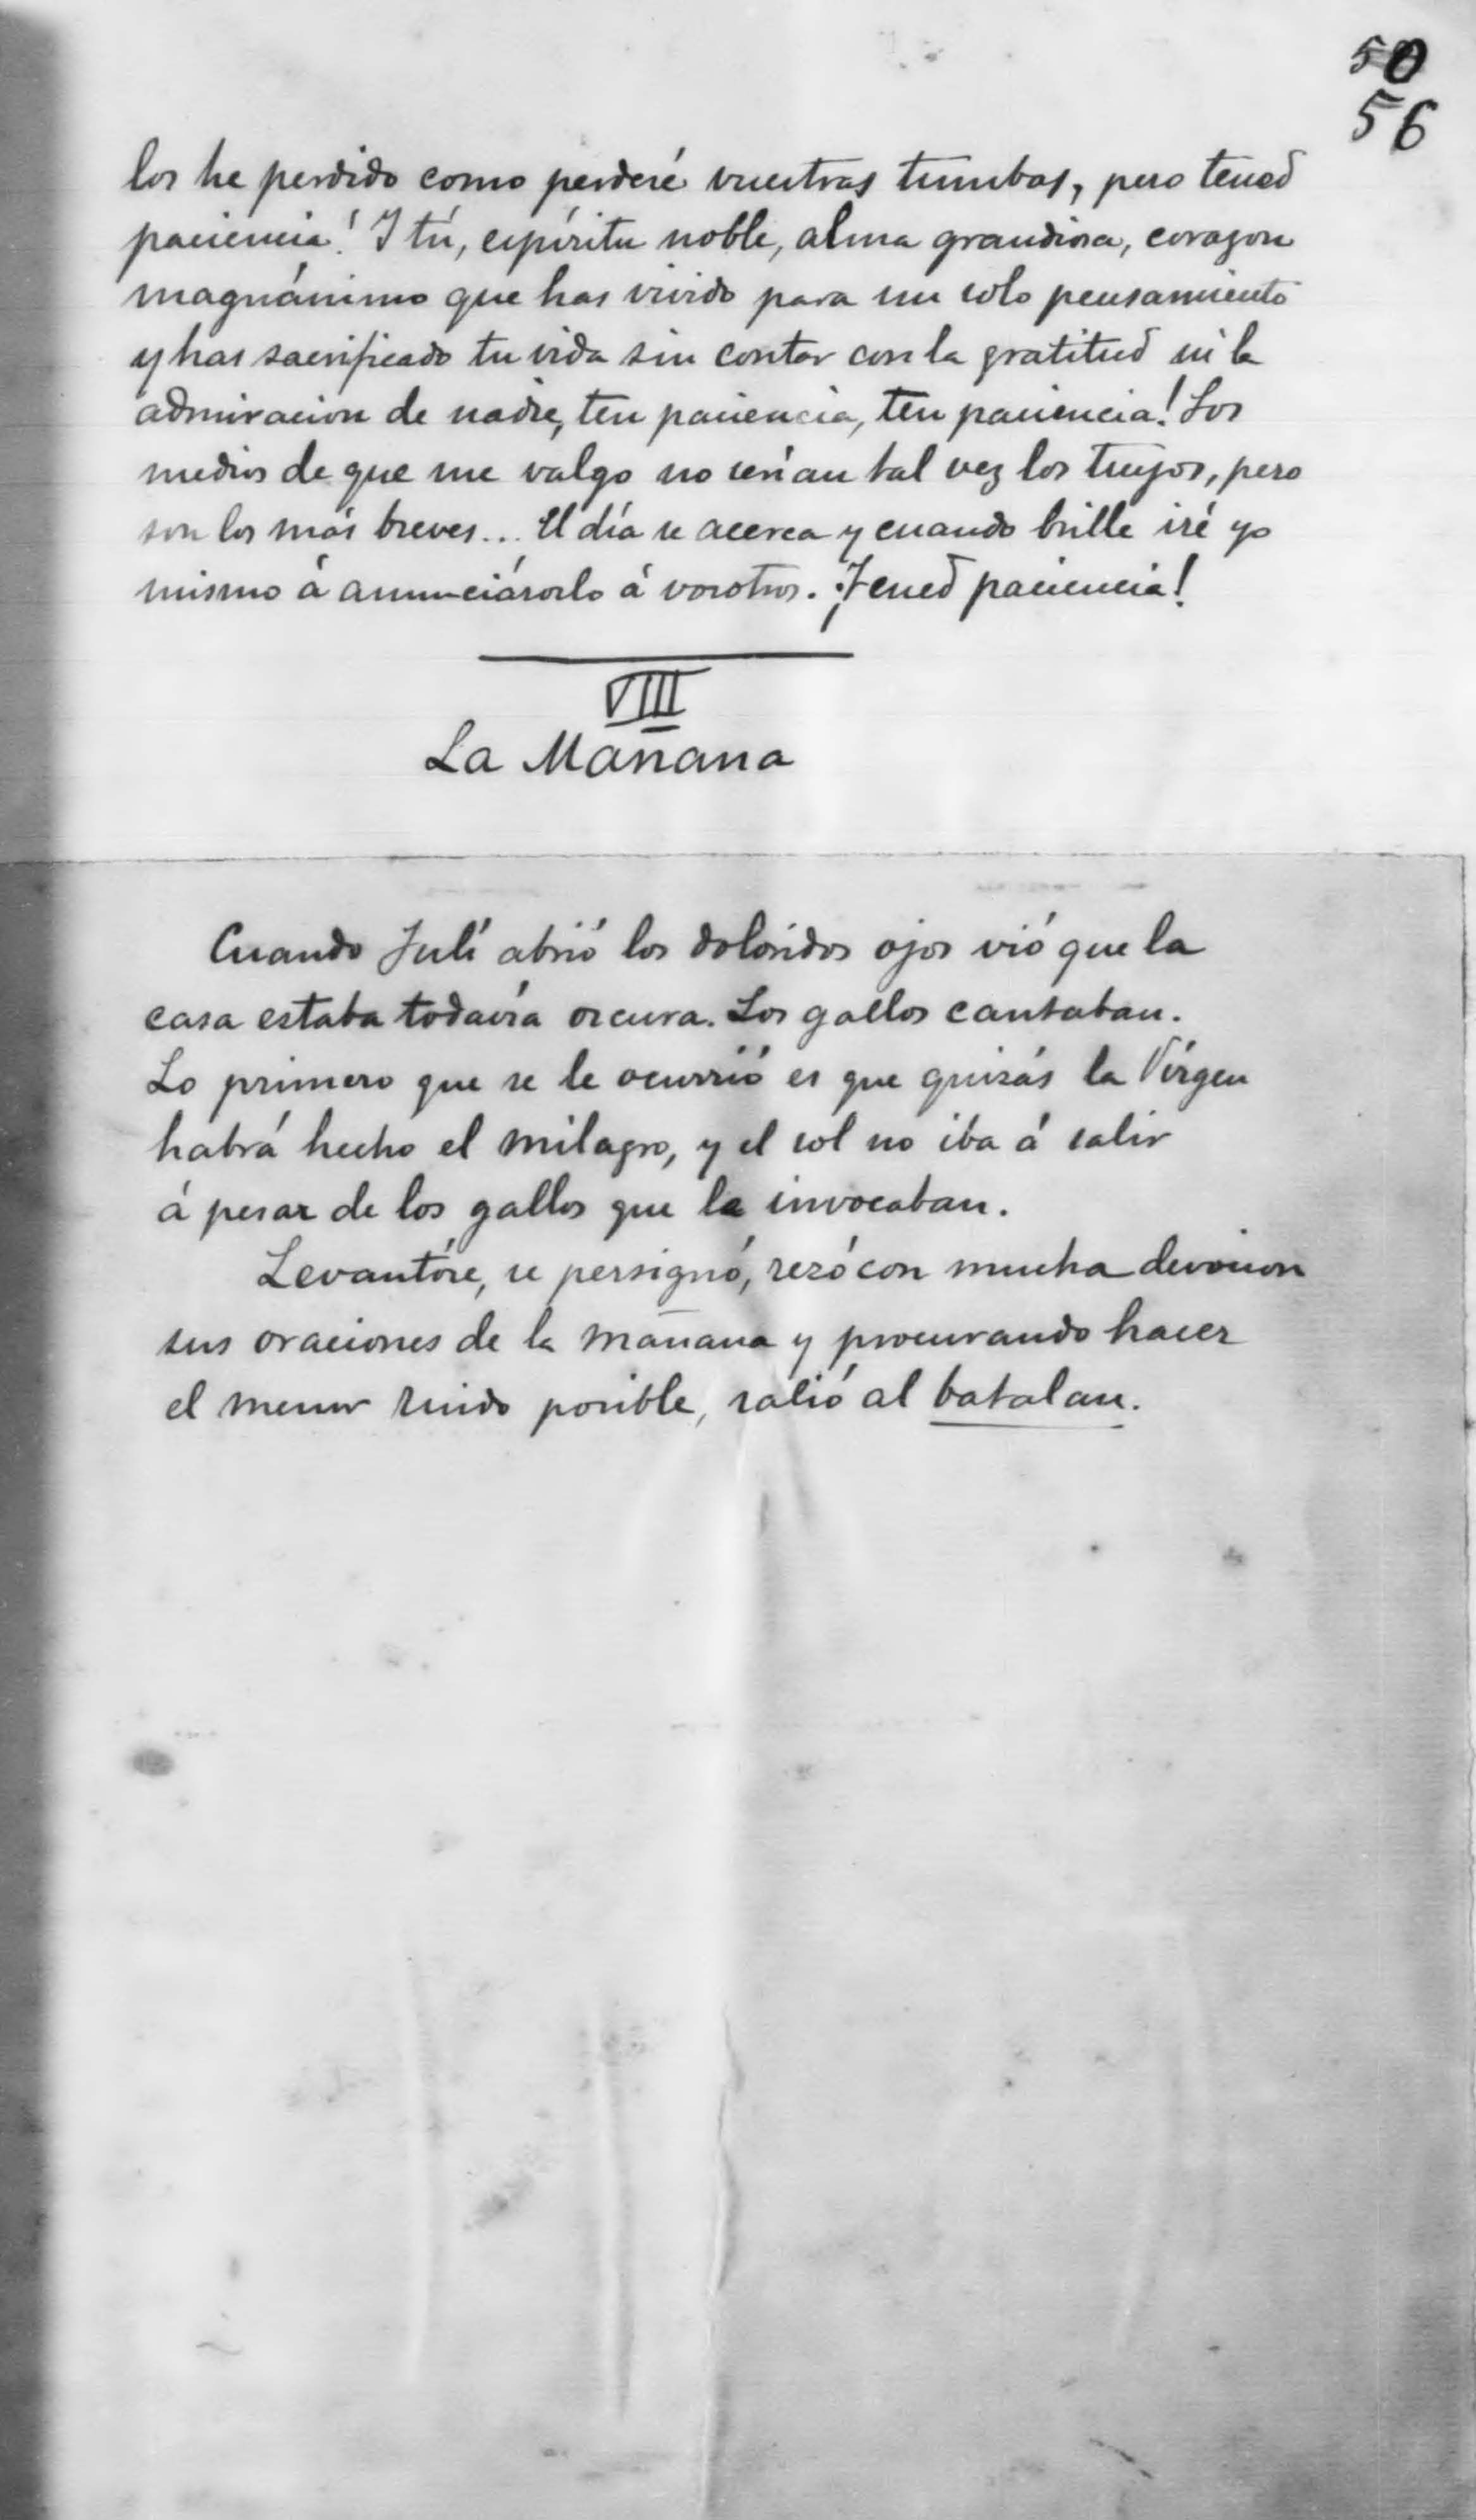 50
56
los he perdido como perderé vuestras tumbas, pero tened
paciencia! Y tú, espíritu noble, alma grandiosa, corazon
magnánimo que has vivido para un solo pensamiento
y has sacrificado tu vida sin contar con la gratitud ni la
admiracion de nadie, ten paciencia, ten paciencia! Los
medios de que me valgo no serían tal vez los tuyos, pero
son los más breves... El día se acerca y cuando brille iré yo
mismo á anunciároslo á vosotros. ¡Tened paciencia!
VIII
La Mañana
Cuando Julí abrió los doloridos ojos vió que la
casa estaba todavía oscura. Los gallos cantaban.
Lo primero que se le ocurrió es que quizás la Vírgen
habrá hecho el milagro, y el sol no iba á salir
á pesar de los gallos que le invocaban.
Levantóse, se persignó, rezó con mucha devocion
sus oraciones de la mañana y procurando hacer
el menor ruido posible, salió al batalan.